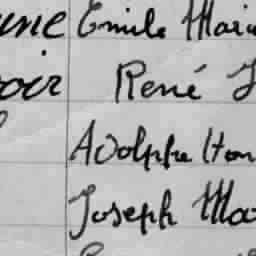 une Emile Mari
oir René J
Adolphe Hon
Joseph Ma